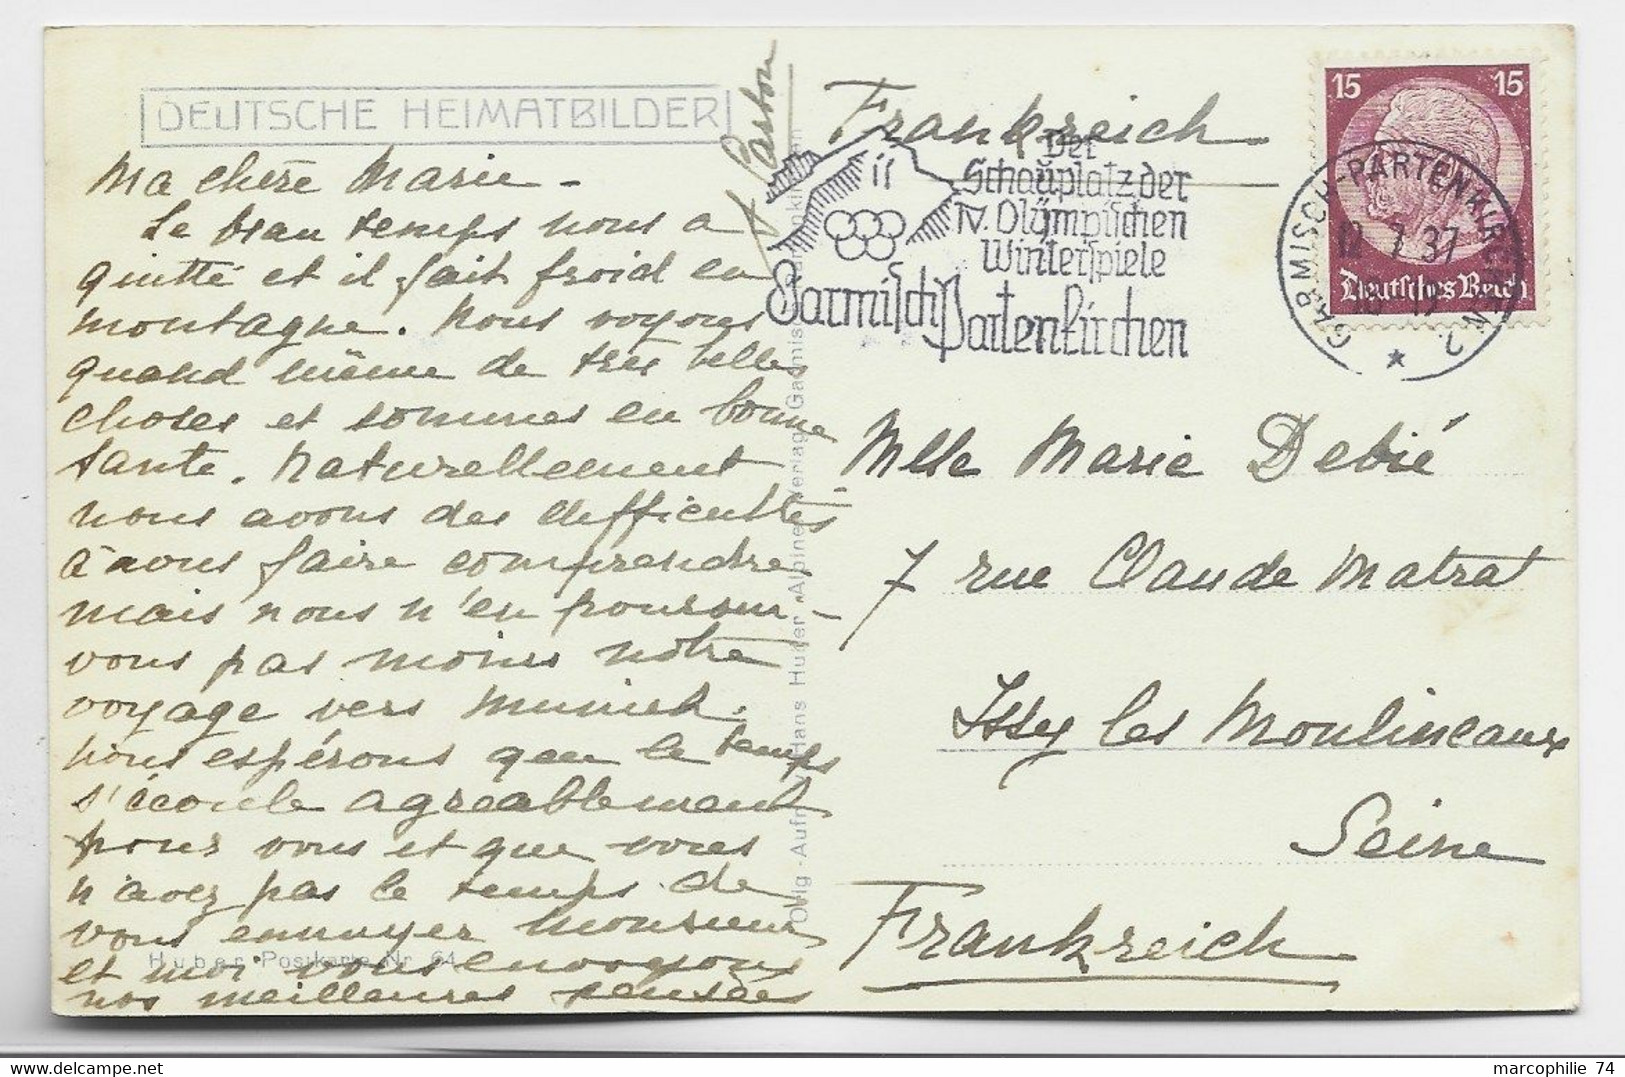 DEUTSCHE HEIMATBILDER
Ma chère Marie -
Le beau temps nous a
quitté et il fait froid en
montagne. Nous voyons
quand même de très belles
choses et sommes en bonne
santé. Naturellement
nous avons des difficultés
à nous faire comprendre
mais nous n'en poursui-
vons pas moins notre
voyage vers Munich.
nous espérons que le temps
s'écoule agréablement
pour vous et que vous
n'avez pas le temps de
vous ennuyer Monsieur
et moi vous envoyons
nos meilleures pensées
Huber Postkarte Nr. 64
Hans Huber, Alpiner Verlag, Garmisch-Partenkirchen
Frankreich
Der
Schauplatz der
IV. Olÿmpischen
Winterspiele
Garmisch Partenkirchen
15 15
Deutsches Reich
GARMISCH-PARTENKIRCHEN 2
12.7.37
Mlle Marie Debié
7 rue Claude Matrat
Issy les Moulineaux
Seine
Frankreich
marcophilie 74